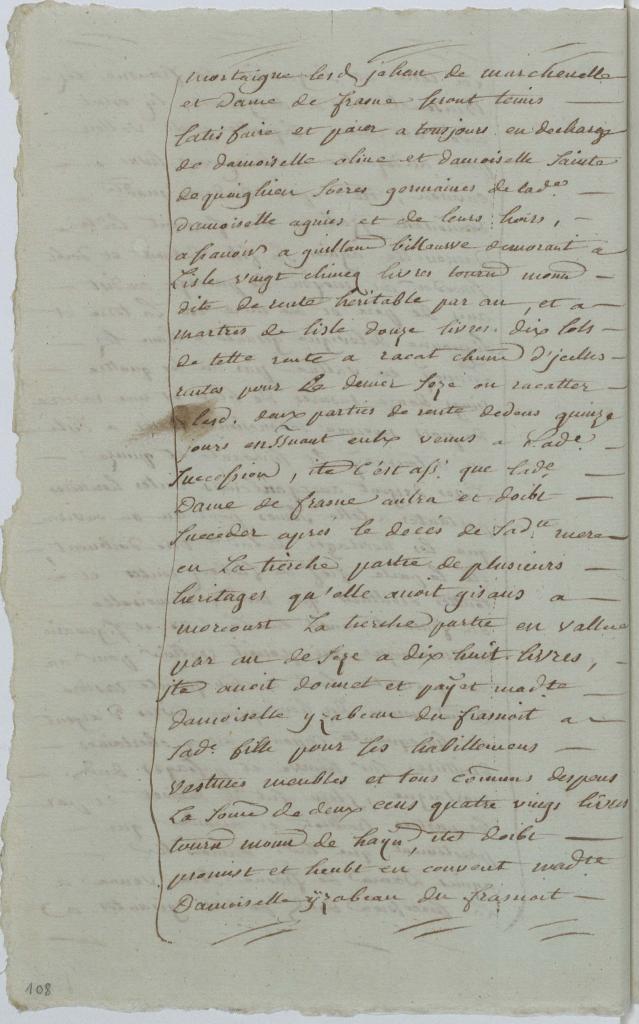 mortaigne lesd. jehan de marchenelle
et Dame de frasne seront tenus —
satisfaire et paier a tousjours en descharge
de damoiselle oline et damoiselle Sainte
de quoighien soeres germaines de lade —
damoiselle agnies et de leurs hoirs, —
a scauoir a guillaume demorant a
Lisle vingt chincq livres tourn monn —
dite de rente heritable par an, et a —
martres de lisle douze livres dix sols —
de telle rente a racat chune d'jcelles
rentes pour Le denier seze ou racatter —
lesd. deux parties de rente dedens quinze
jours enssuuant eulx venus a Lade
Succession, ite C'est ass. que lade —
Dame de frasne aultra et doibt —
Succeder apres le deces de Sadte mere —
en La tierche partie de plusieurs —
heritages qu'elle auoit gisans a —
morcourt La tierche partie en vallue
par an de seze a dix huit livres,
ite auoit donnet et payet madte
damoiselle yzabeau du frasnoit a —
Sade fille pour ses habillemens —
vestures meubles et tous comuns despens
La Some de deux cens quatre vings livres
tourn monn de hayn, ite doibt —
promist et heubt en convent madte
Damoiselle yzabeau du frasnoit —
108